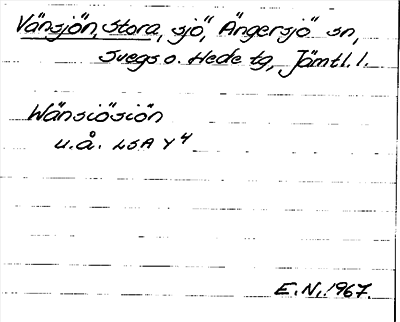 Vänsjön, Stora, sjö, Ängersjö sn,
Svegs o. Hede tg, Jämtl. l.
Wänsiösiön
u.å. LSA Y4
E.N. 1967.